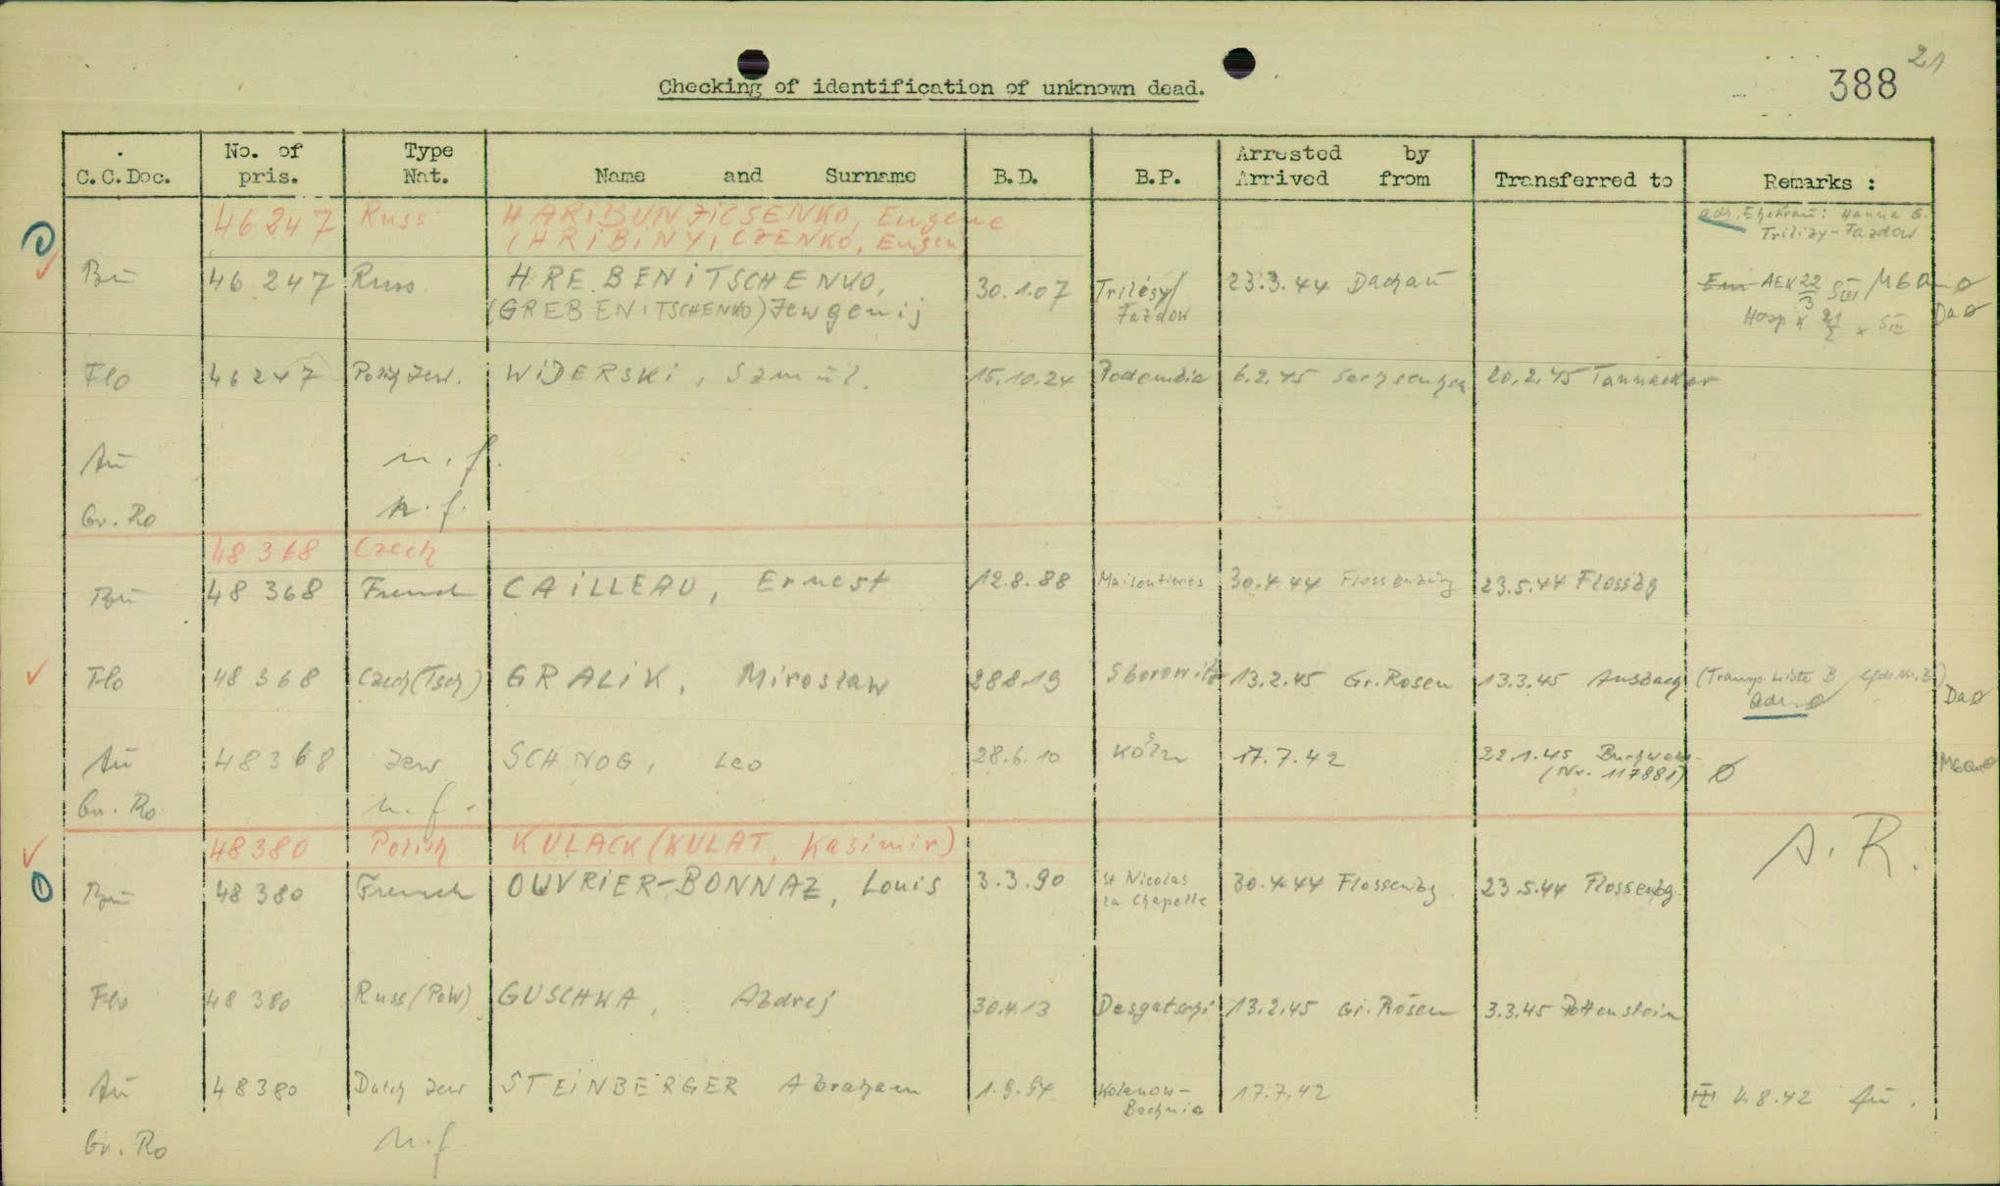 21
388
Checking of identification of unknown dead.
C.C.Doc. No. of pris. Type Nat. Name and Surname B.D. B.P. Arrested by Arrived from Transferred to Remarks :
46 247 Russ HARIBUNJICSENKO, Eugene
(HRIBINYICZENKO, Eugen
adr. Ehefrau: Hanna G.
Trilizy-Fazdow
Bu 46 247 Russ HREBENITSCHENKO, 30.1.07 Trilésy/ 23.3.44 Dachau
(GREBENITSCHENKO) Jewgenij Fazdow
Flo 46247 Polish Jew. WIDERSKI, Szmul. 15.10.24 6.2.45 20.2.45
Au n.f.
Gr. Ro n.f.
48 368 Czech
Bu 48 368 French CAILLEAU, Ernest 12.8.88 30.4.44 Flossenburg 23.5.44 Flossbg
Flo 48 368 Czech (Tsch) GRALIK, Miroslaw 28.8.19 Sborowitz 13.2.45 Gr. Rosen 13.3.45 Ansbach (Transp. Liste B
adr. Ø Da Ø
Au 48368 Jew SCHNOG, Leo 28.6.10 Köln 17.7.42 22.1.45 Buchwa
(Nr. 117881) Ø
Gr. Ro n.f.
48380 Polish KULACK (KULAT, Kasimir)
A.R.
Bu 48 380 French OUVRIER-BONNAZ, Louis 3.3.90 St Nicolas la Chapelle 30.4.44 Flossenbg. 23.5.44 Flossenbg.
Flo 48 380 Russ (PoW) GUSCHKA, Andrej 30.4.13 13.2.45 Gr. Rosen 3.3.45 Pottenstein
Au 48380 Dutch Jew STEINBERGER Abraham Bochnia 17.7.42 8.42 Au.
Gr. Ro n.f.